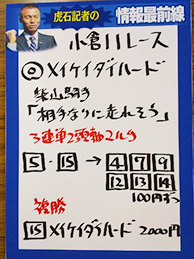 虎石記者の
情報最前線
小倉11レース
◎メイケイダイハード
柴山騎手
「相手なりに走れそう」
3連単2頭軸マルチ
5・15→4 7 9
12 13 14
100円ずつ
複勝
15メイケイダイハード 2000円